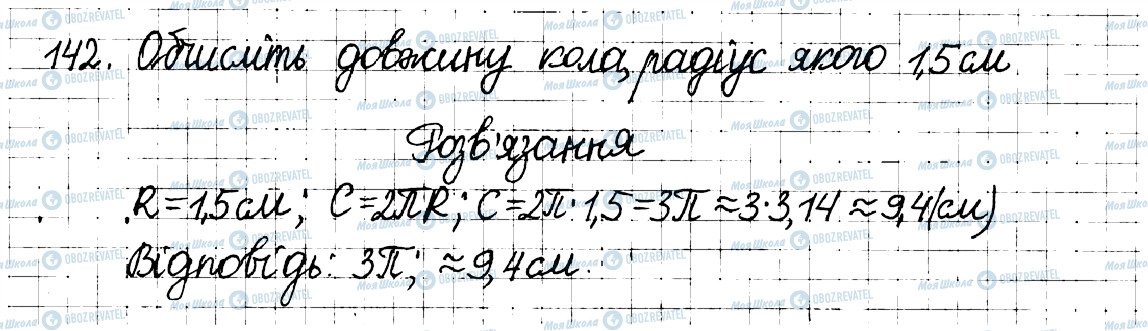 142. Обчисліть довжину кола, радіус якого 1,5 см
Розв'язання
R = 1,5 см; C = 2πR; C = 2π·1,5 = 3π ≈ 3·3,14 ≈ 9,4 (см)
Відповідь: 3π; ≈ 9,4 см.